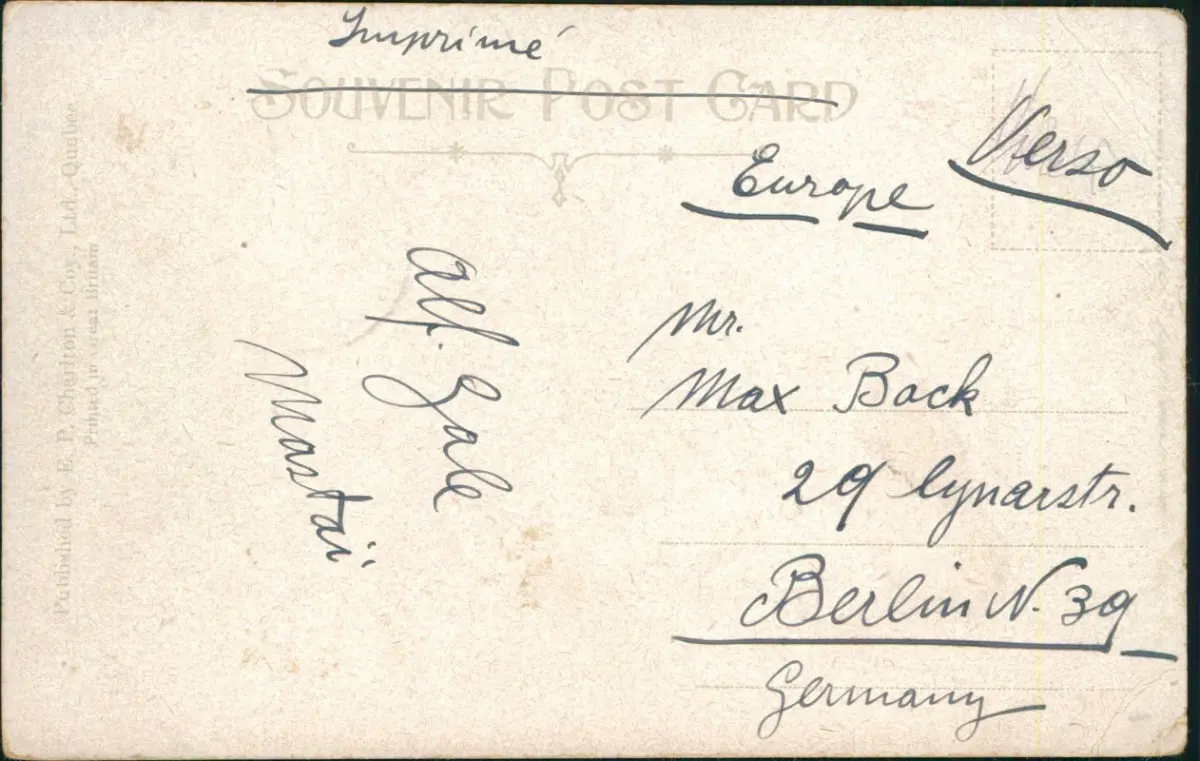 Imprimé
SOUVENIR POST CARD
Verso
Europe
Mr.
Max Back
29 Lynarstr.
Berlin N. 39
Germany
Alf. Gale
Mastai.
Published by E. P. Charlton & Coy., Ltd. Quebec
Printed in Great Britain